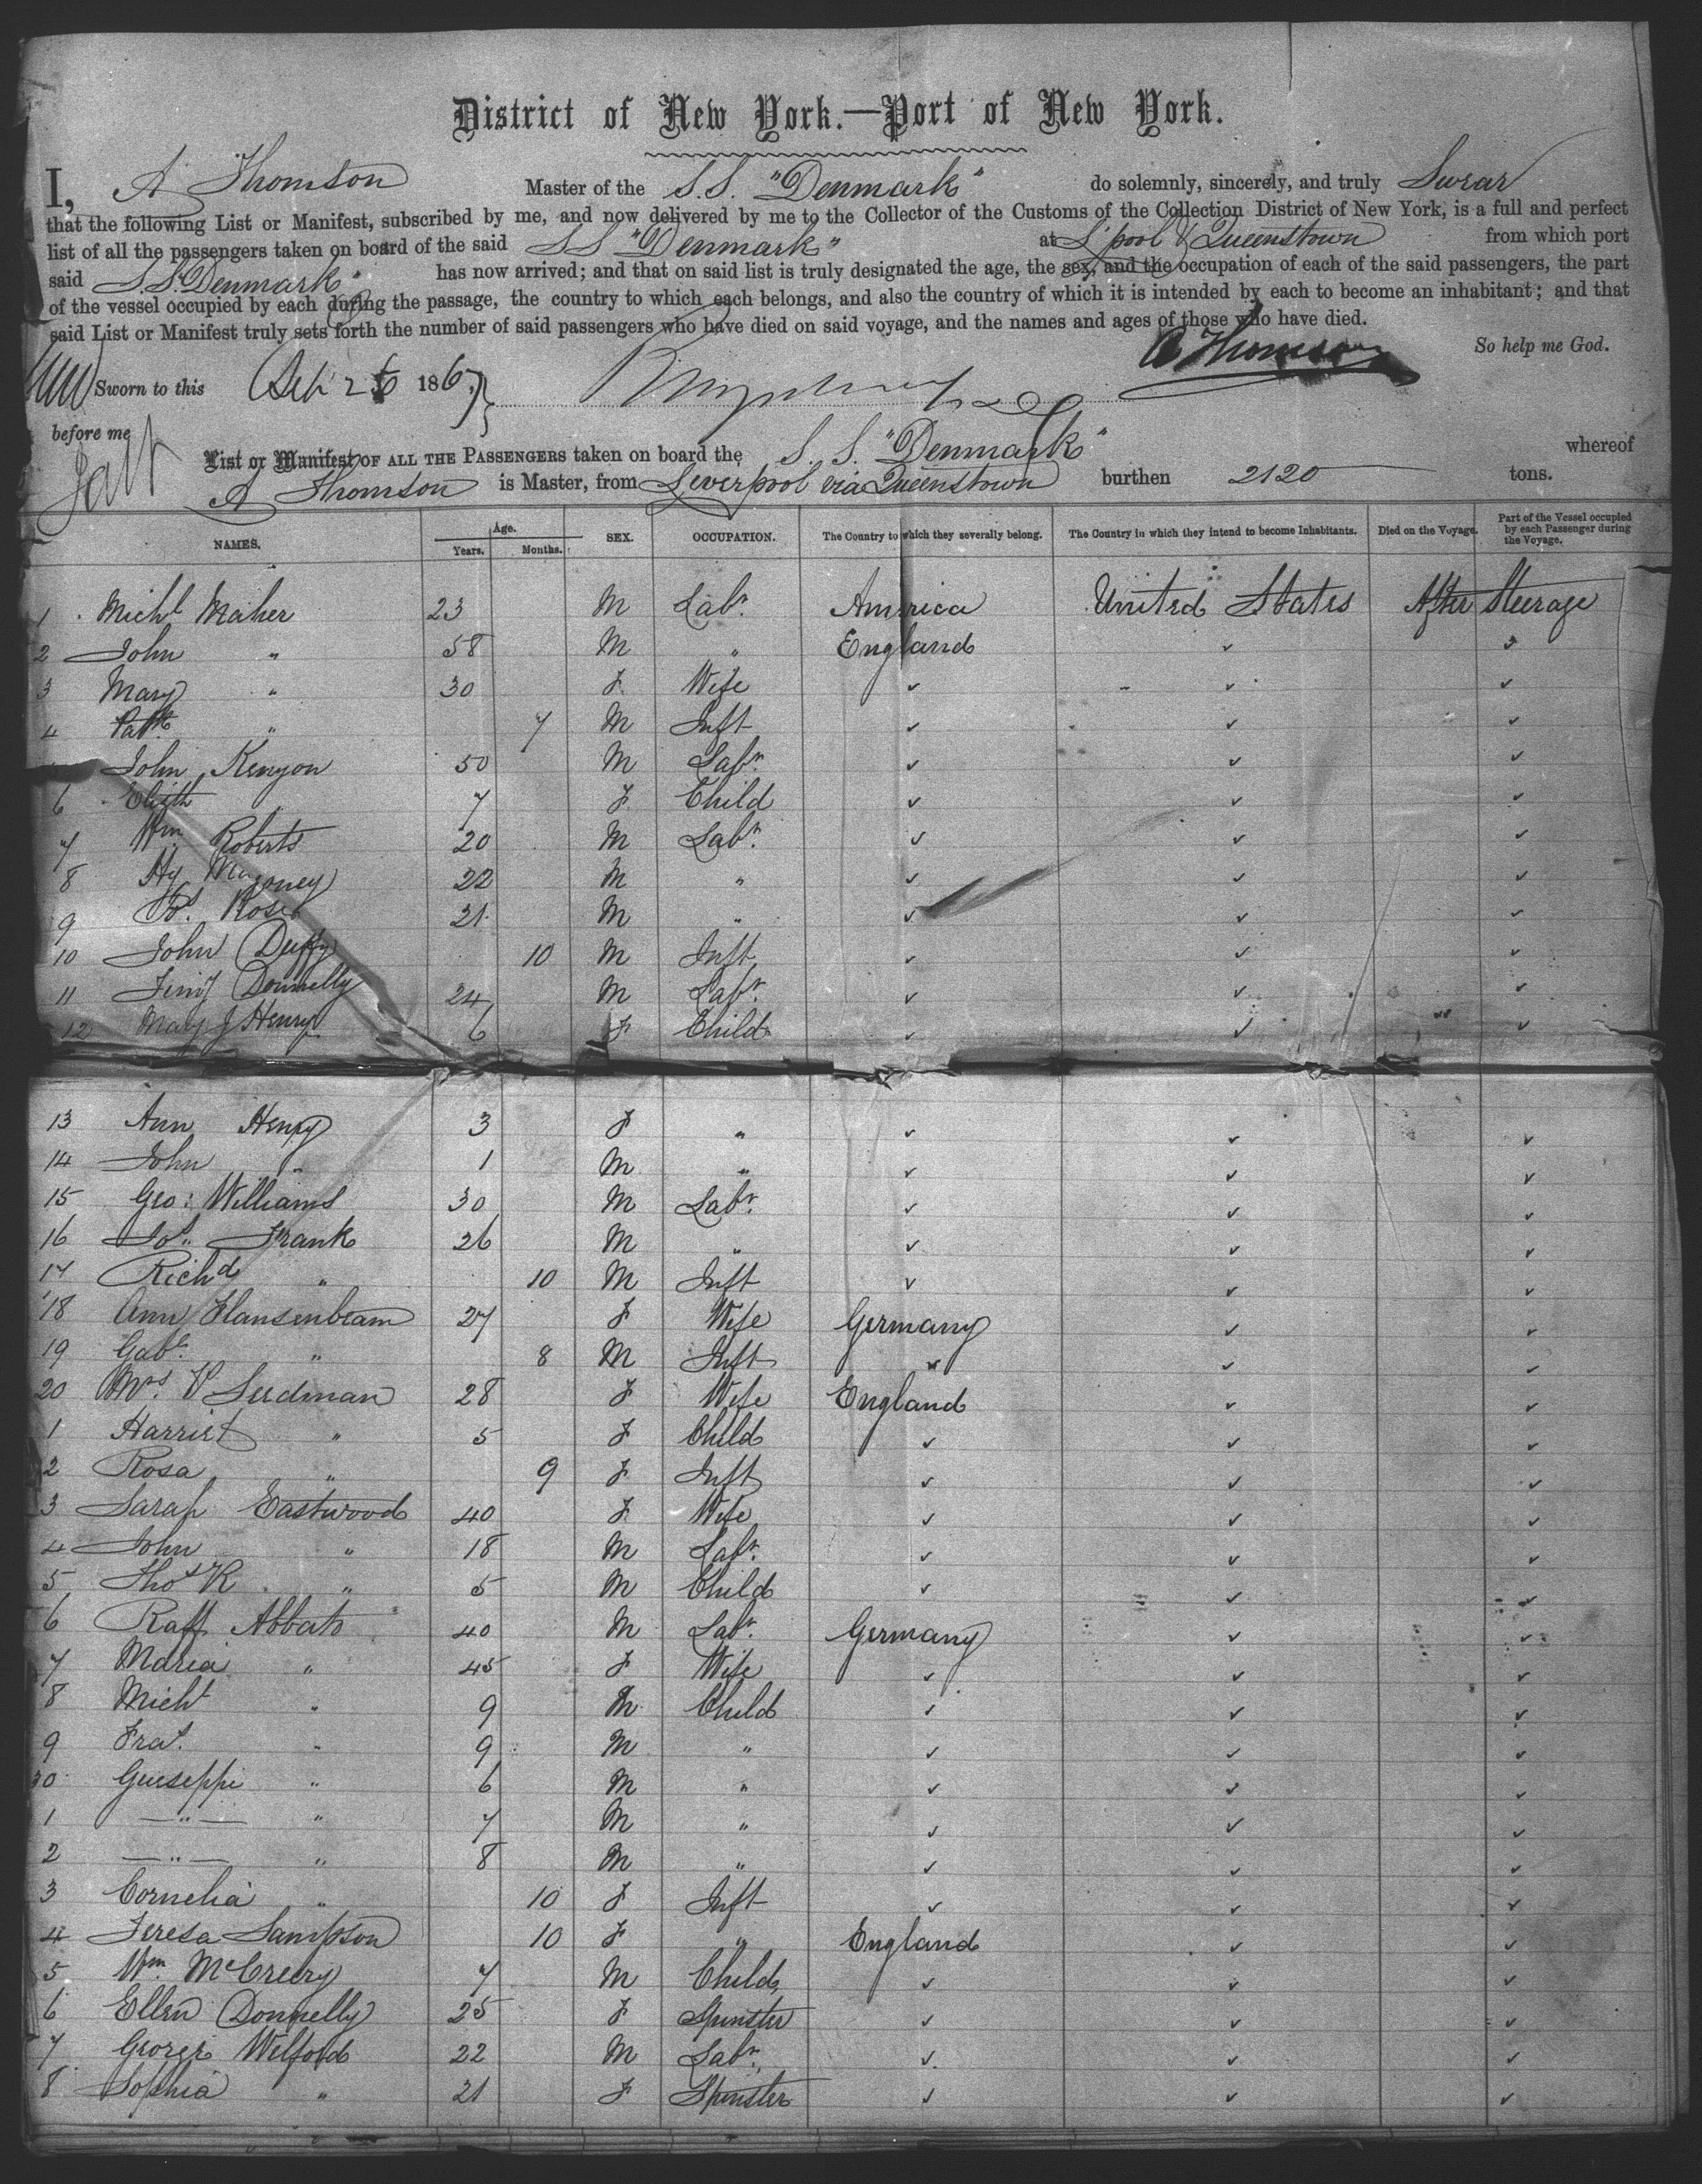 District of New York.—Port of New York.
I, A Thomson Master of the S.S. "Denmark" do solemnly, sincerely, and truly Swear
that the following List or Manifest, subscribed by me, and now delivered by me to the Collector of the Customs of the Collection District of New York, is a full and perfect
list of all the passengers taken on board of the said S S "Denmark" at L'pool & Queenstown from which port
said S.S. Denmark has now arrived; and that on said list is truly designated the age, the sex, and the occupation of each of the said passengers, the part
of the vessel occupied by each during the passage, the country to which each belongs, and also the country of which it is intended by each to become an inhabitant; and that
said List or Manifest truly sets forth the number of said passengers who have died on said voyage, and the names and ages of those who have died.
A Thomson So help me God.
Sworn to this 186
before me
List or Manifest OF ALL THE PASSENGERS taken on board the S. S. "Denmark" whereof
A Thomson is Master, from Liverpool via Queenstown burthen 2120 tons.
NAMES. Age. Years. Months. SEX. OCCUPATION. The Country to which they severally belong. The Country in which they intend to become Inhabitants. Died on the Voyage. Part of the Vessel occupied by each Passenger during the Voyage.
1 Michl Maher 23 M Labr. America United States After Steerage
2 John " 58 M " England ✓ ✓
3 Mary " 30 F Wife ✓ ✓ ✓
4 Patk " 7 M Inft ✓ ✓ ✓
John Kenyon 50 M Labr. ✓ ✓ ✓
6 Elizth 7 F Child ✓ ✓ ✓
7 Wm Roberts 20 M Labr. ✓ ✓ ✓
8 Hy 22 M " ✓ ✓ ✓
9 21 M " ✓ ✓ ✓
10 John Duffy 10 M Inft ✓ ✓ ✓
11 Donnelly 24 M Labr. ✓ ✓ ✓
12 Mary J Henry 6 F Child ✓ ✓ ✓
13 Ann Henry 3 F " ✓ ✓ ✓
14 John " 1 M " ✓ ✓ ✓
15 Geo: Williams 30 M Labr. ✓ ✓ ✓
16 Jos. Frank 26 M " ✓ ✓ ✓
17 Richd " 10 M Inft ✓ ✓ ✓
18 Ann Hansenbeam 27 F Wife Germany ✓ ✓
19 Gabl. " 8 M Inft " ✓ ✓
20 Mrs. V Seedman 28 F Wife England ✓ ✓
1 Harriet " 5 F Child ✓ ✓ ✓
2 Rosa " 9 F Inft ✓ ✓ ✓
3 Sarah Eastwood 40 F Wife ✓ ✓ ✓
4 John " 18 M Labr. ✓ ✓ ✓
5 Thos K " 5 M Child ✓ ✓ ✓
6 Raff Abbato 40 M Labr. Germany ✓ ✓
7 Maria " 45 F Wife ✓ ✓ ✓
8 Michl " 9 M Child ✓ ✓ ✓
9 Fras. " 9 M " ✓ ✓ ✓
30 Guiseppi " 6 M " ✓ ✓ ✓
1 —"— " 7 M " ✓ ✓ ✓
2 —"— " 8 M " ✓ ✓ ✓
3 Cornelia " 10 F Inft ✓ ✓ ✓
4 Teresa Sampson 10 F " England ✓ ✓
5 Wm. McCreery 7 M Child ✓ ✓ ✓
6 Ellen Donnelly 25 F Spinster ✓ ✓ ✓
7 George Welford 22 M Labr. ✓ ✓ ✓
8 Sophia " 21 F Spinster ✓ ✓ ✓